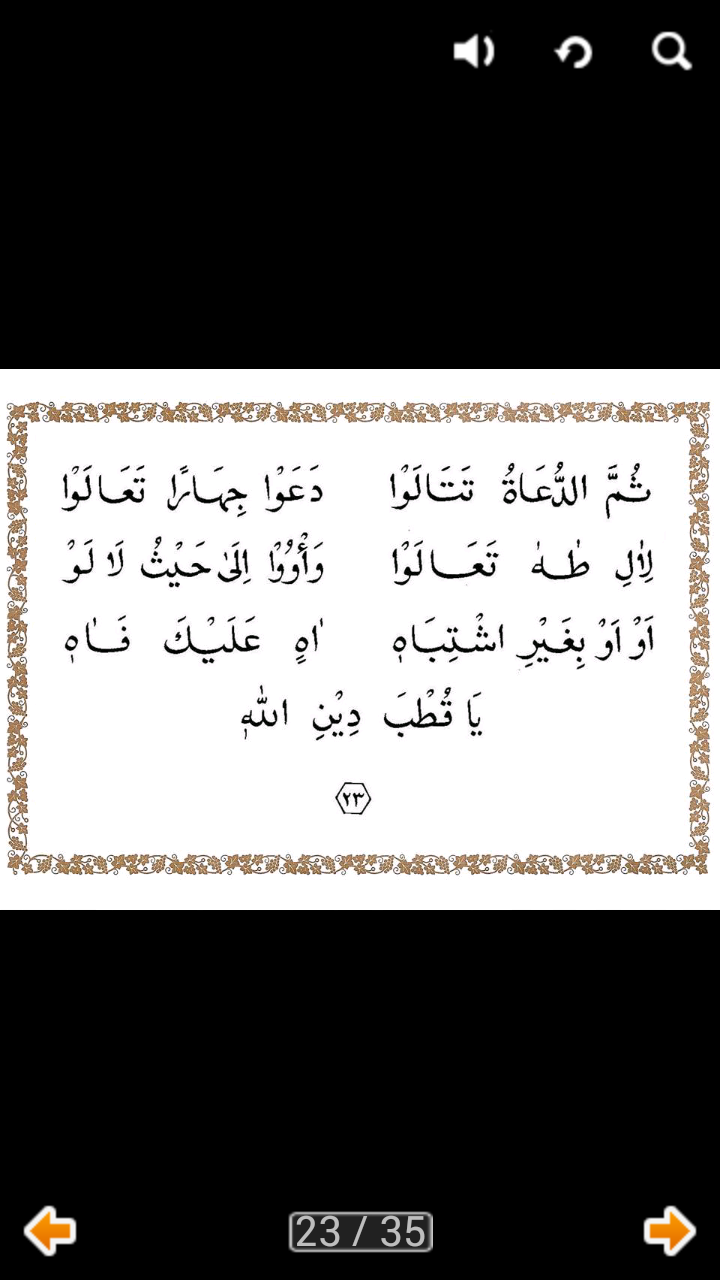 ثُمَّ الدُّعَاةُ تَتَالَوْا دَعَوْا جِهَارًا تَعَالَوْا
لِاٰلِ طٰهٰ تَعَالَوْا وَأْوُوْا اِلَىٰ حَيْثُ لَا لَوْ
اَوْ اَوْ بِغَيْرِ اشْتِبَاهٖ اٰهٍ عَلَيْكَ فَاٰهٖ
يَا قُطْبَ دِيْنِ اللهِ
٢٣
23 / 35